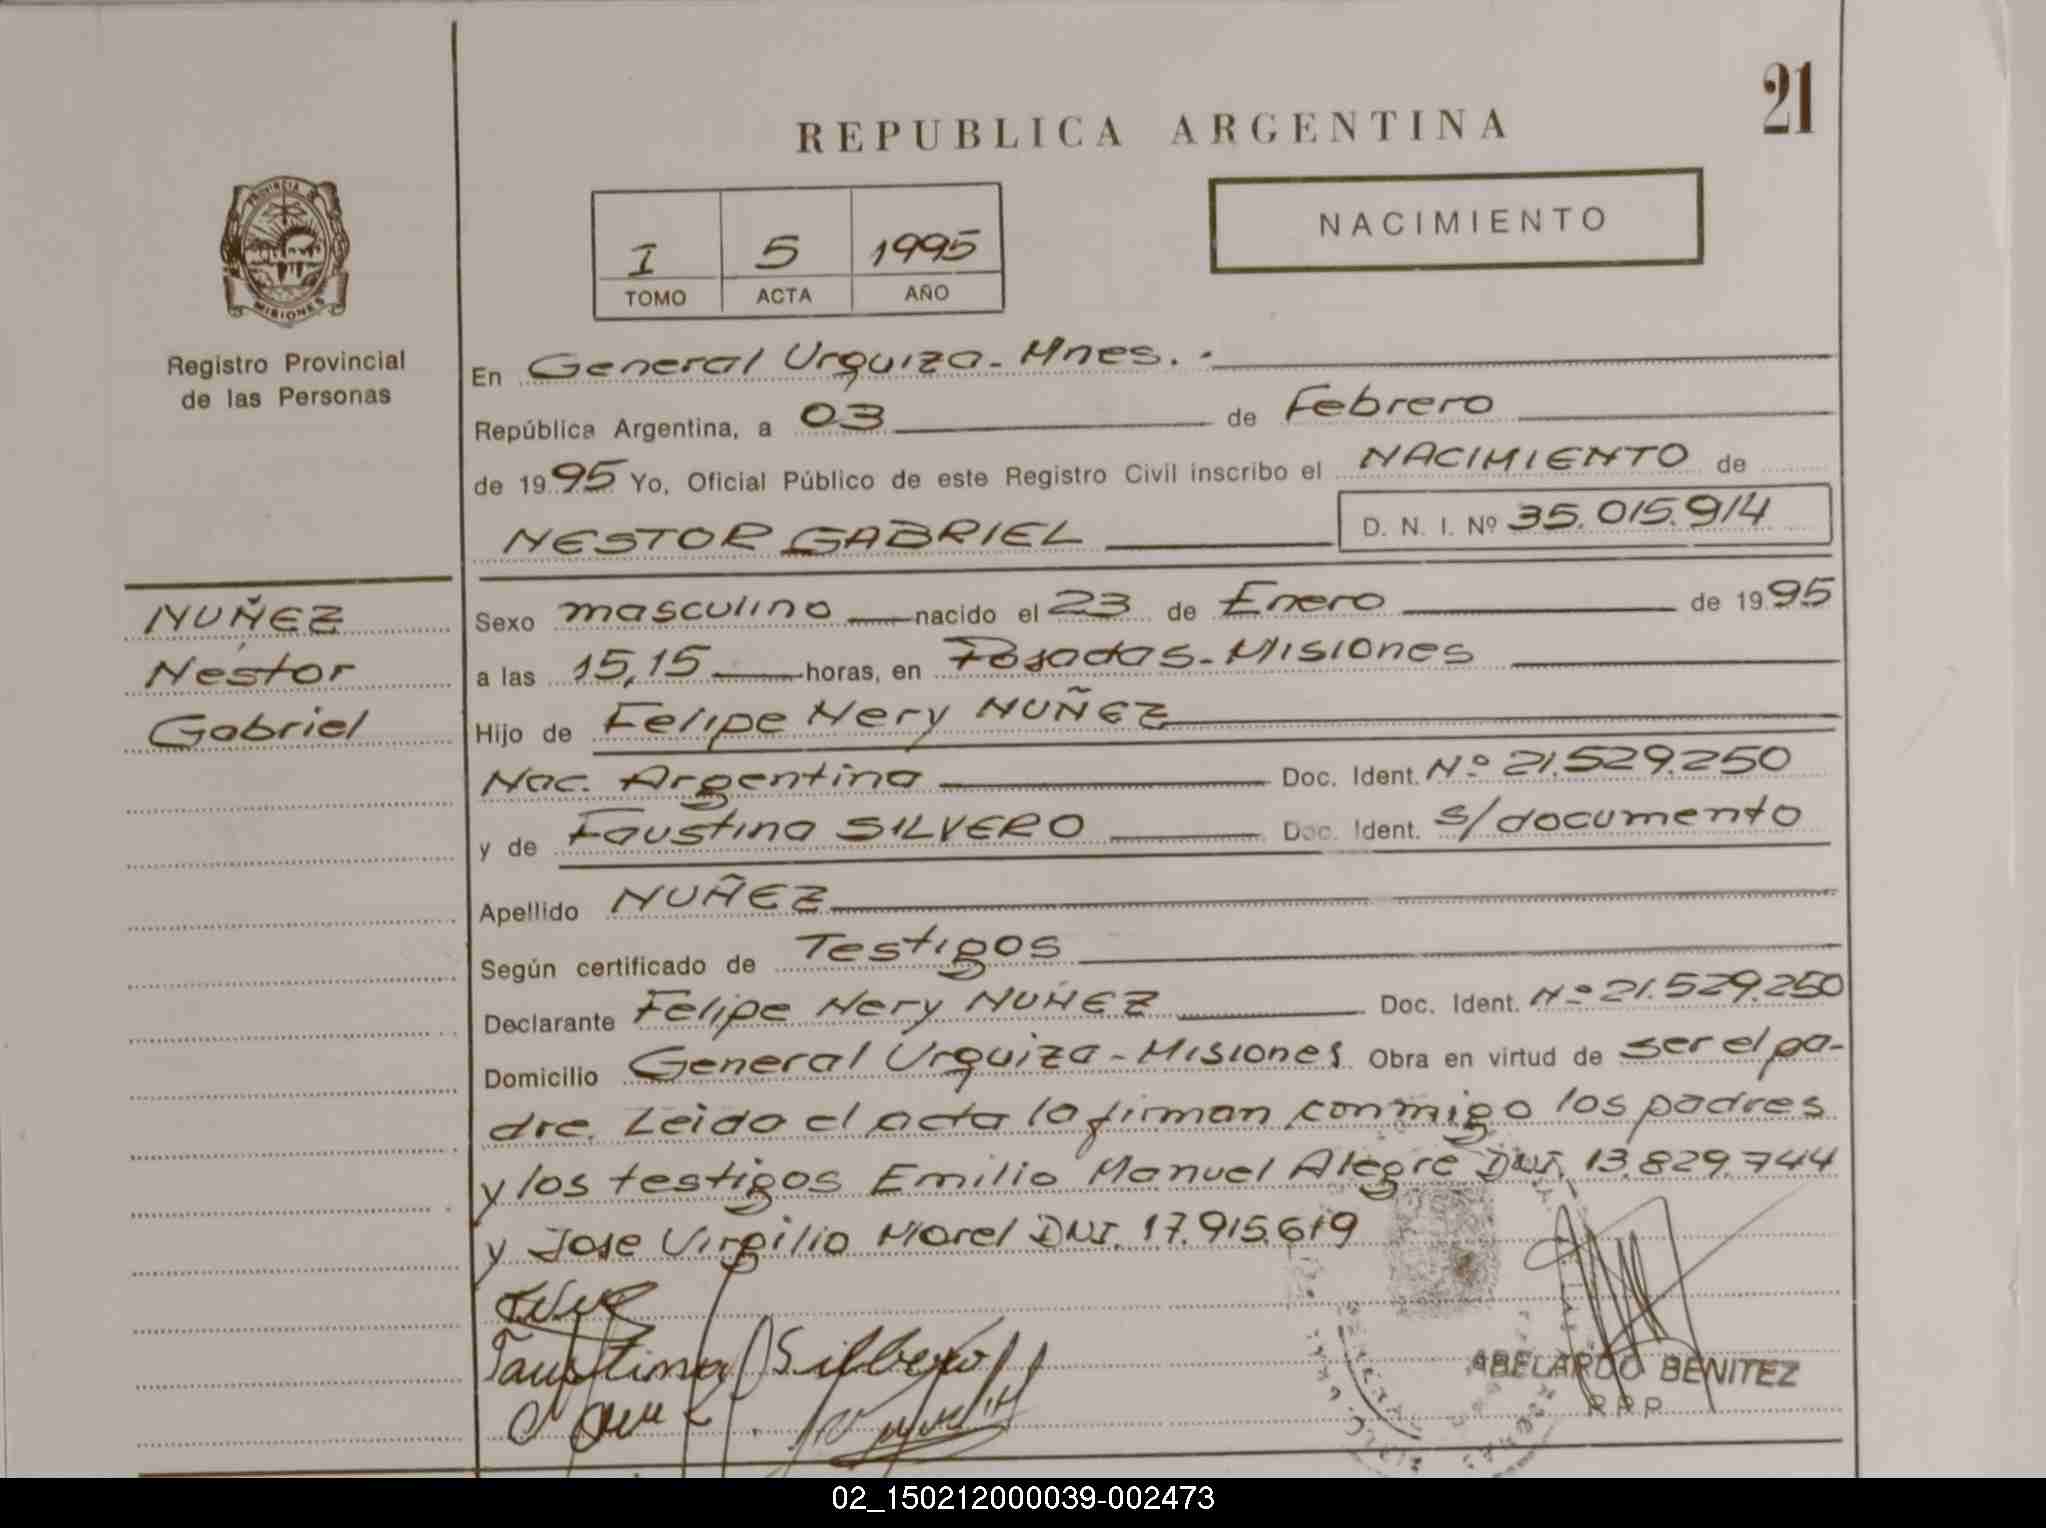 21
REPUBLICA ARGENTINA
PROVINCIA DE
MISIONES
Registro Provincial
de las Personas
I 5 1995
TOMO ACTA AÑO
NACIMIENTO
En General Urquiza - Mnes. -
República Argentina, a 03 de Febrero
de 1995 Yo, Oficial Público de este Registro Civil inscribo el NACIMIENTO de
NESTOR GABRIEL D. N. I. Nº 35.015.914
NUÑEZ
Nestor
Gabriel
Sexo masculino nacido el 23 de Enero de 1995
a las 15,15 horas, en Posadas - Misiones
Hijo de Felipe Nery NUÑEZ
Nac. Argentina Doc. Ident. Nº 21.529.250
y de Faustina SILVERO Doc. Ident. s/documento
Apellido NUÑEZ
Según certificado de Testigos
Declarante Felipe Nery NUÑEZ Doc. Ident. Nº 21.529.250
Domicilio General Urquiza - Misiones Obra en virtud de ser el pa-
dre. Leido el acta la firman conmigo los padres
y los testigos Emilio Manuel Alegre DNI. 13.829.744
y Jose Virgilio Morel DNI. 17.915.619
Faustina Silbero
ABELARDO BENITEZ
R P P
02_150212000039-002473